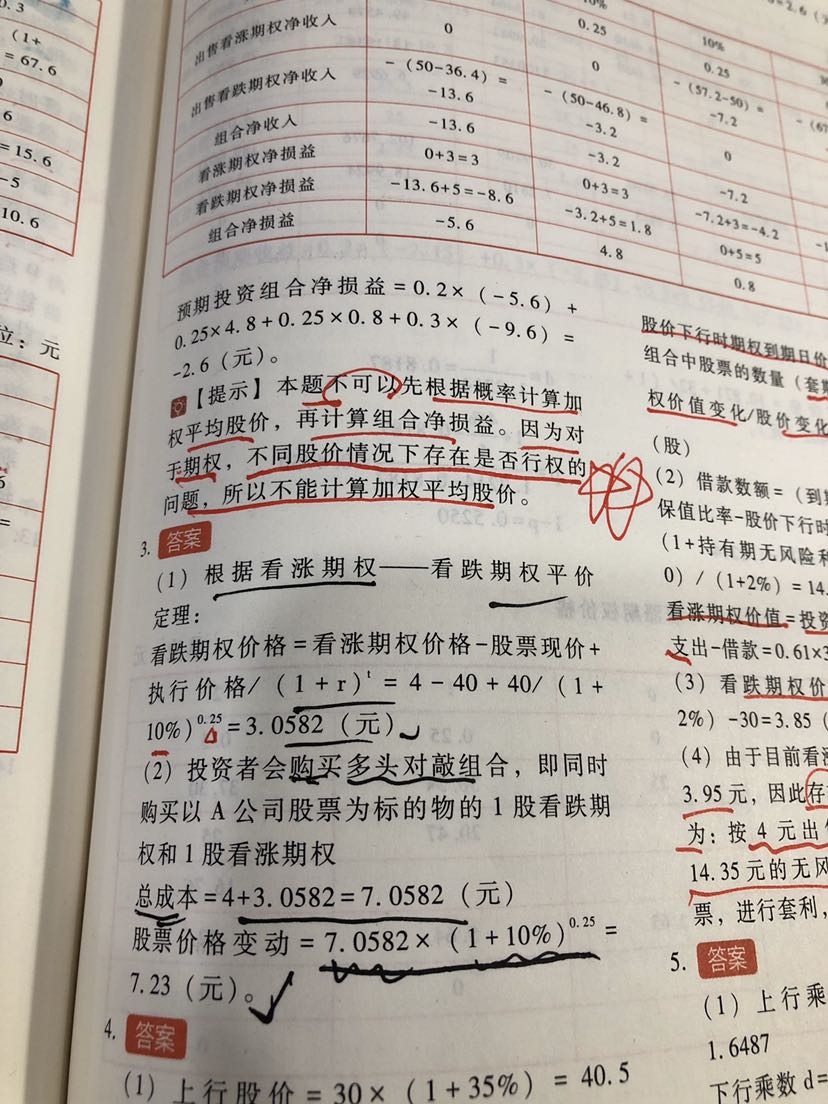 0.3
(1+
= 67.6
6
= 15.6
-5
10.6
位：元
10%
10%
=2.6
出售看涨期权净收入 0 0.25 0.25
出售看跌期权净收入 -（50-36.4）= -13.6 0 -（57.2-50）= -7.2
组合净收入 -13.6 -（50-46.8）= -3.2 0
看涨期权净损益 0+3=3 -3.2 -7.2
看跌期权净损益 -13.6+5=-8.6 0+3=3 -7.2+3=-4.2
组合净损益 -5.6 -3.2+5=1.8 0+5=5
4.8 0.8
预期投资组合净损益＝0.2×（-5.6）+
0.25×4.8+0.25×0.8+0.3×（-9.6）=
-2.6（元）。
【提示】本题不可以先根据概率计算加
权平均股价，再计算组合净损益。因为对
于期权，不同股价情况下存在是否行权的
问题，所以不能计算加权平均股价。
3. 答案
（1）根据看涨期权——看跌期权平价
定理：
看跌期权价格＝看涨期权价格-股票现价+
执行价格/（1+r）t＝4-40+40/（1+
10%）0.25=3.0582（元）
（2）投资者会购买多头对敲组合，即同时
购买以 A 公司股票为标的物的 1 股看跌期
权和 1 股看涨期权
总成本=4+3.0582=7.0582（元）
股票价格变动＝7.0582×（1+10%）0.25＝
7.23（元）。
4. 答案
（1）上行股价＝30×（1+35%）＝40.5
股价下行时期权到期日价
组合中股票的数量（套
权价值变化/股价变化
（股）
（2）借款数额＝（到
保值比率-股价下行时
（1+持有期无风险利
0）/（1+2%）=14.
看涨期权价值=投资
支出-借款=0.61×3
（3）看跌期权价
2%）-30=3.85（
（4）由于目前看
3.95 元，因此存
为：按 4 元出
14.35 元的无风
票，进行套利，
5. 答案
（1）上行乘
1.6487
下行乘数 d=